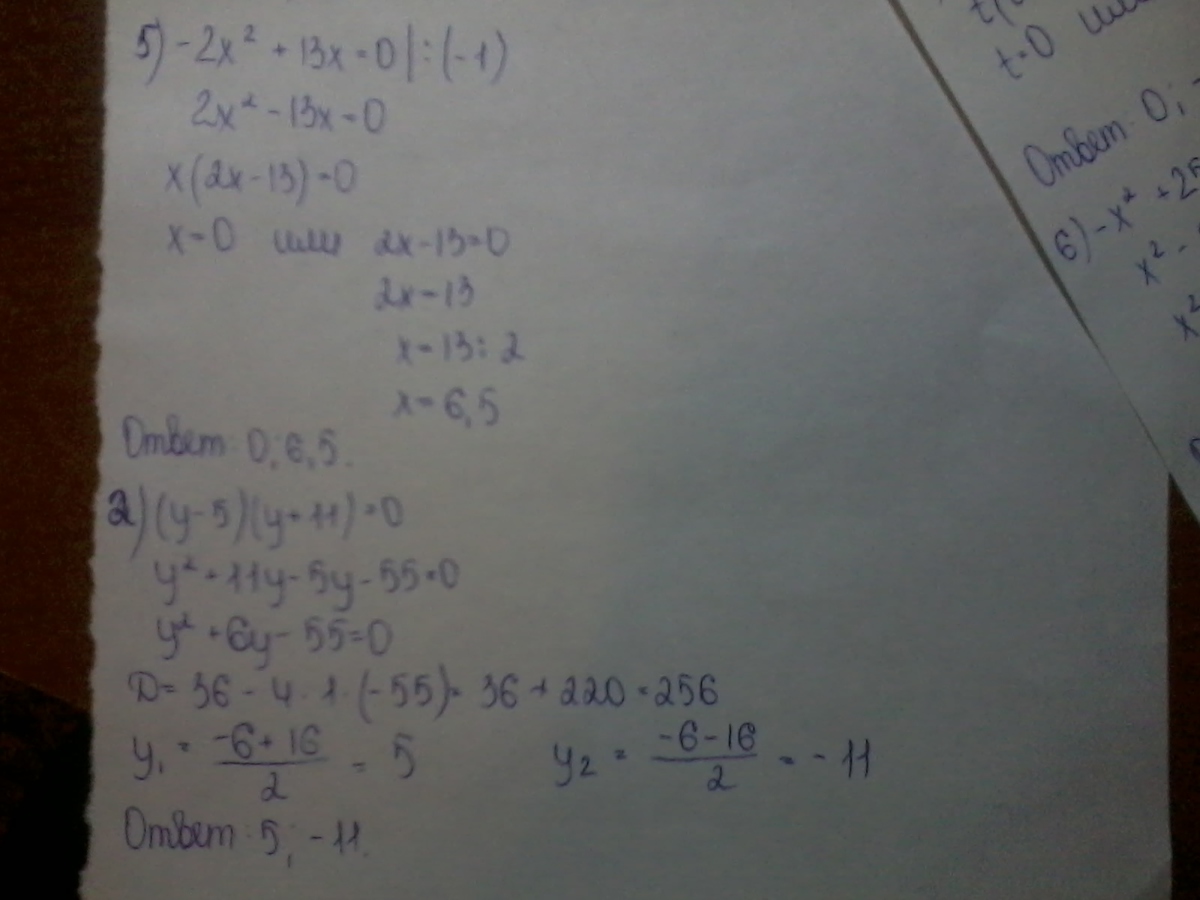 5) -2x² + 13x = 0 | : (-1)
2x² - 13x = 0
x(2x - 13) = 0
x = 0 или 2x - 13 = 0
2x = 13
x = 13 : 2
x = 6,5
Ответ: 0; 6,5.
2) (y - 5)(y + 11) = 0
y² + 11y - 5y - 55 = 0
y² + 6y - 55 = 0
D = 36 - 4 · 1 · (-55) = 36 + 220 = 256
y₁ = (-6 + 16)/2 = 5 y₂ = (-6 - 16)/2 = -11
Ответ: 5; -11.
t = 0 или
Ответ: 0;
6) -x² + 25
x² -
x²